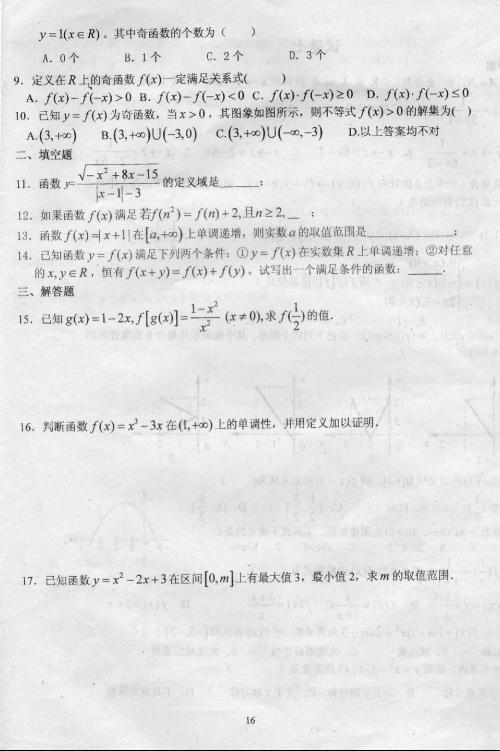 y=1(x∈R)。其中奇函数的个数为（　　）
A. 0个　B. 1个　C. 2个　D. 3个
9. 定义在R上的奇函数f(x)一定满足关系式(　　)
A. f(x)-f(-x)>0 B. f(x)-f(-x)<0 C. f(x)·f(-x)≥0 D. f(x)·f(-x)≤0
10. 已知y=f(x)为奇函数，当x>0，其图象如图所示，则不等式f(x)>0的解集为(　)
A.(3,+∞)　B.(3,+∞)∪(-3,0)　C.(3,+∞)∪(-∞,-3)　D.以上答案均不对
二、填空题
11. 函数y=√(-x²+8x-15)/(|x-1|-3)的定义域是______；
12. 如果函数f(x)满足若f(n²)=f(n)+2,且n≥2,__ ；
13. 函数f(x)=|x+1|在[a,+∞)上单调递增，则实数a的取值范围是______；
14. 已知函数y=f(x)满足下列两个条件：①y=f(x)在实数集R上单调递增；②对任意
的x,y∈R，恒有f(x+y)=f(x)+f(y)。试写出一个满足条件的函数：______.
三、解答题
15. 已知g(x)=1-2x,f[g(x)]=(1-x²)/x² (x≠0),求f(1/2)的值.
16. 判断函数f(x)=x³-3x在(1,+∞)上的单调性，并用定义加以证明.
17. 已知函数y=x²-2x+3在区间[0,m]上有最大值3，最小值2，求m的取值范围.
16